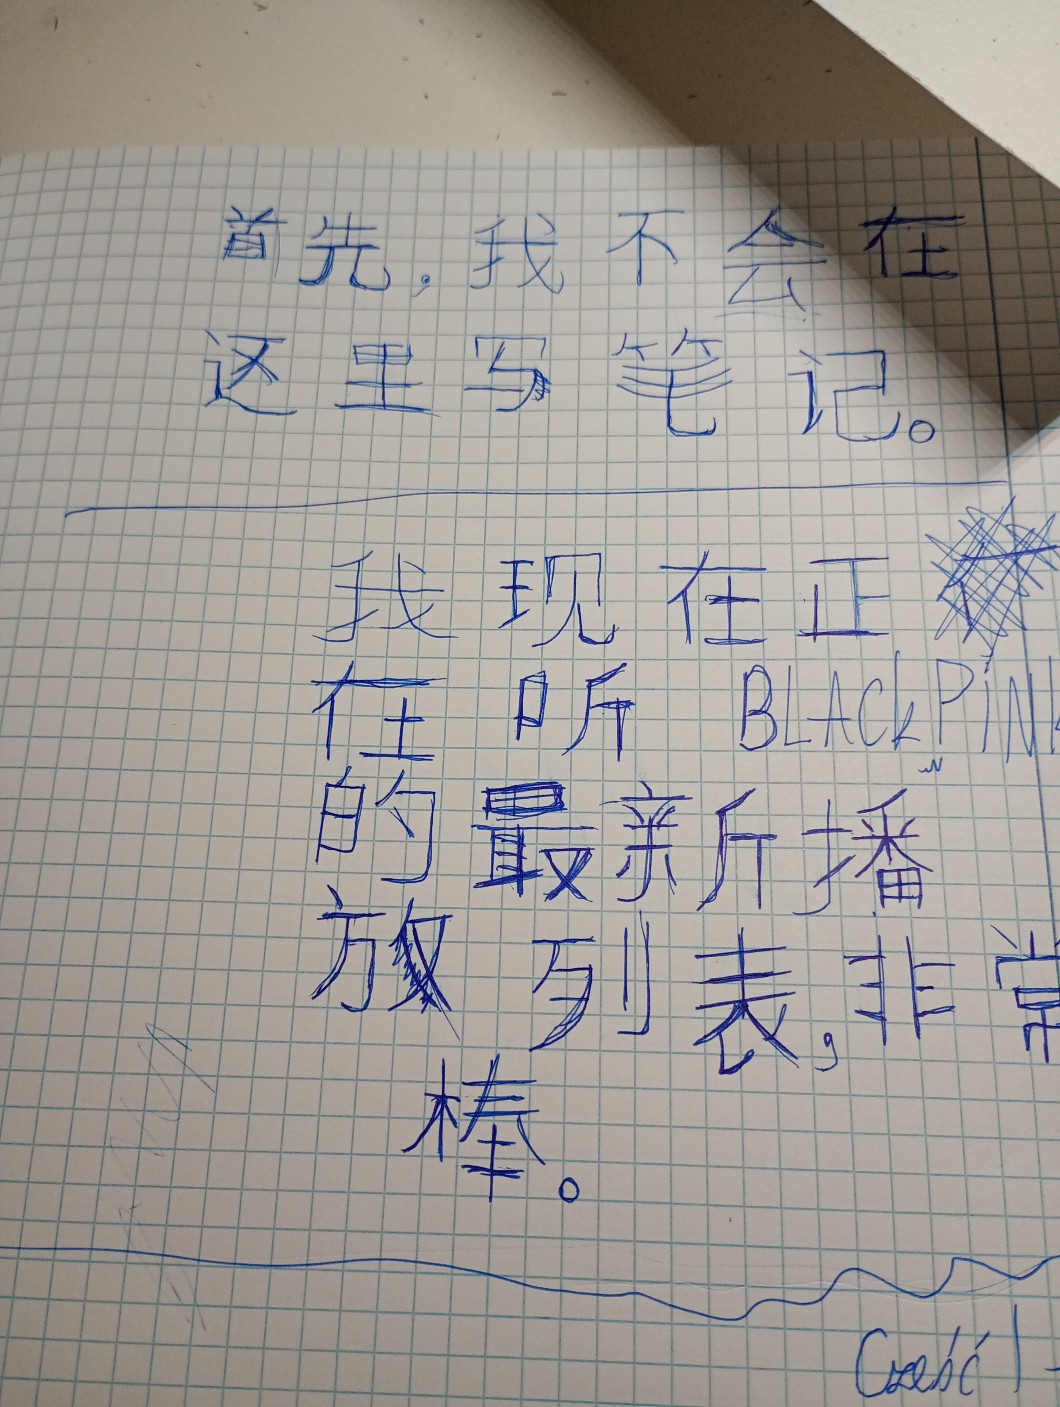 首先，我不会在
这里写笔记。
我现在正
在听 BLACKPINK
的最新播
放列表，非常
棒。
Cześć